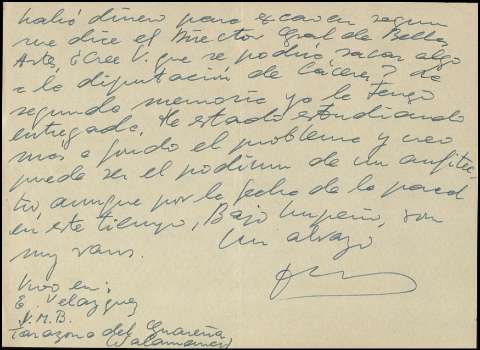 habrá dinero para excavar segun
me dice el Director Gral de Bellas
Artes. ¿Cree V. que se podría sacar algo
a la diputacion de Cáceres? La
segunda memoria ya la tengo
entregada. He estado estudiando
mas a fondo el problema y creo
puede ser el podium de un anfitea-
tro, aunque por la fecha de la pared
en este tiempo, Bajo Imperio, son
muy raros.
Un abrazo
Vivo en:
E. Velazquez
N.M.B.
Tarazona del Guareña
(Salamanca)